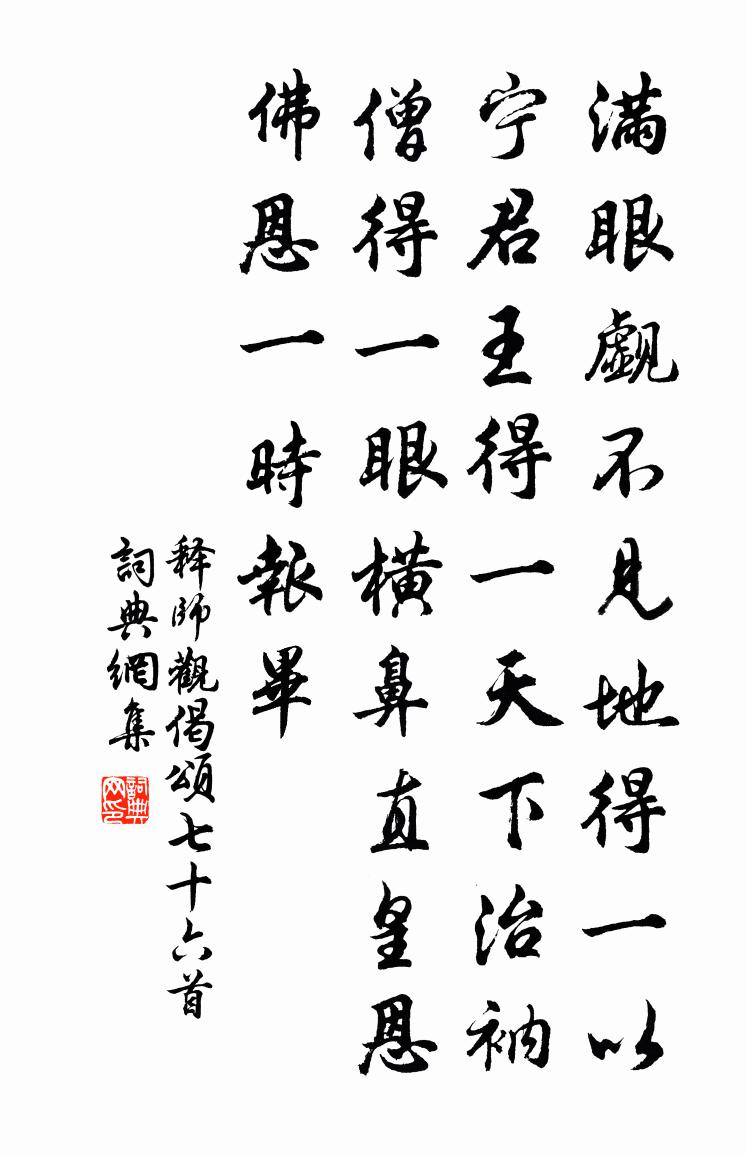 满眼觑不见地得一以
宁君王得一天下治衲
僧得一眼横鼻直皇恩
佛恩一時報畢
释師觀偈頌七十六首
詞典網集
詞典网印